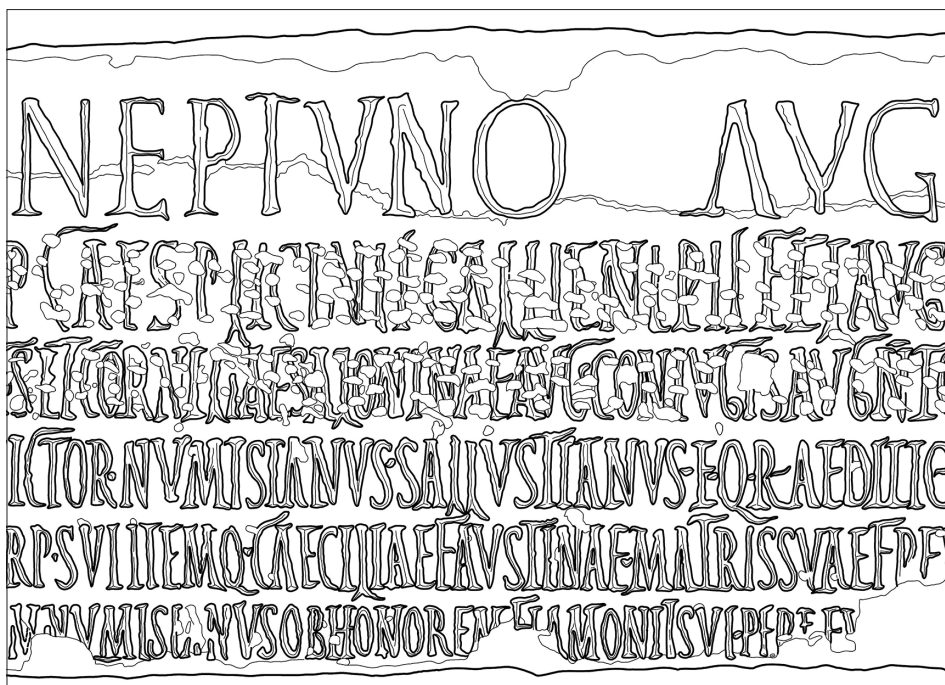 NEPTVNO AVG
P CAES P LICINI GALLIENI PII FEL AVG
ET CORNELIAE SALONINAE AVG CONIVGIS AVG N
ICTOR NVMISIANVS SALLVSTIANVS EQ·R·AEDILIC
RP·SVI ITEMQ CAECILIAE FAVSTINAE MATRIS SVAE F P P
NVMISIANVS OB HONOREM FLAMONII SVI PERPET